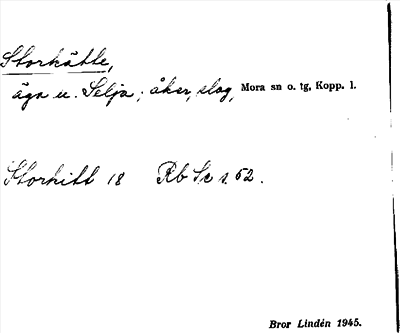 Storkätte,
äga u. Selja; åker, slog, Mora sn o. tg, Kopp. l.
Storkitt 18 Rb Se s. 52.
Bror Lindén 1945.